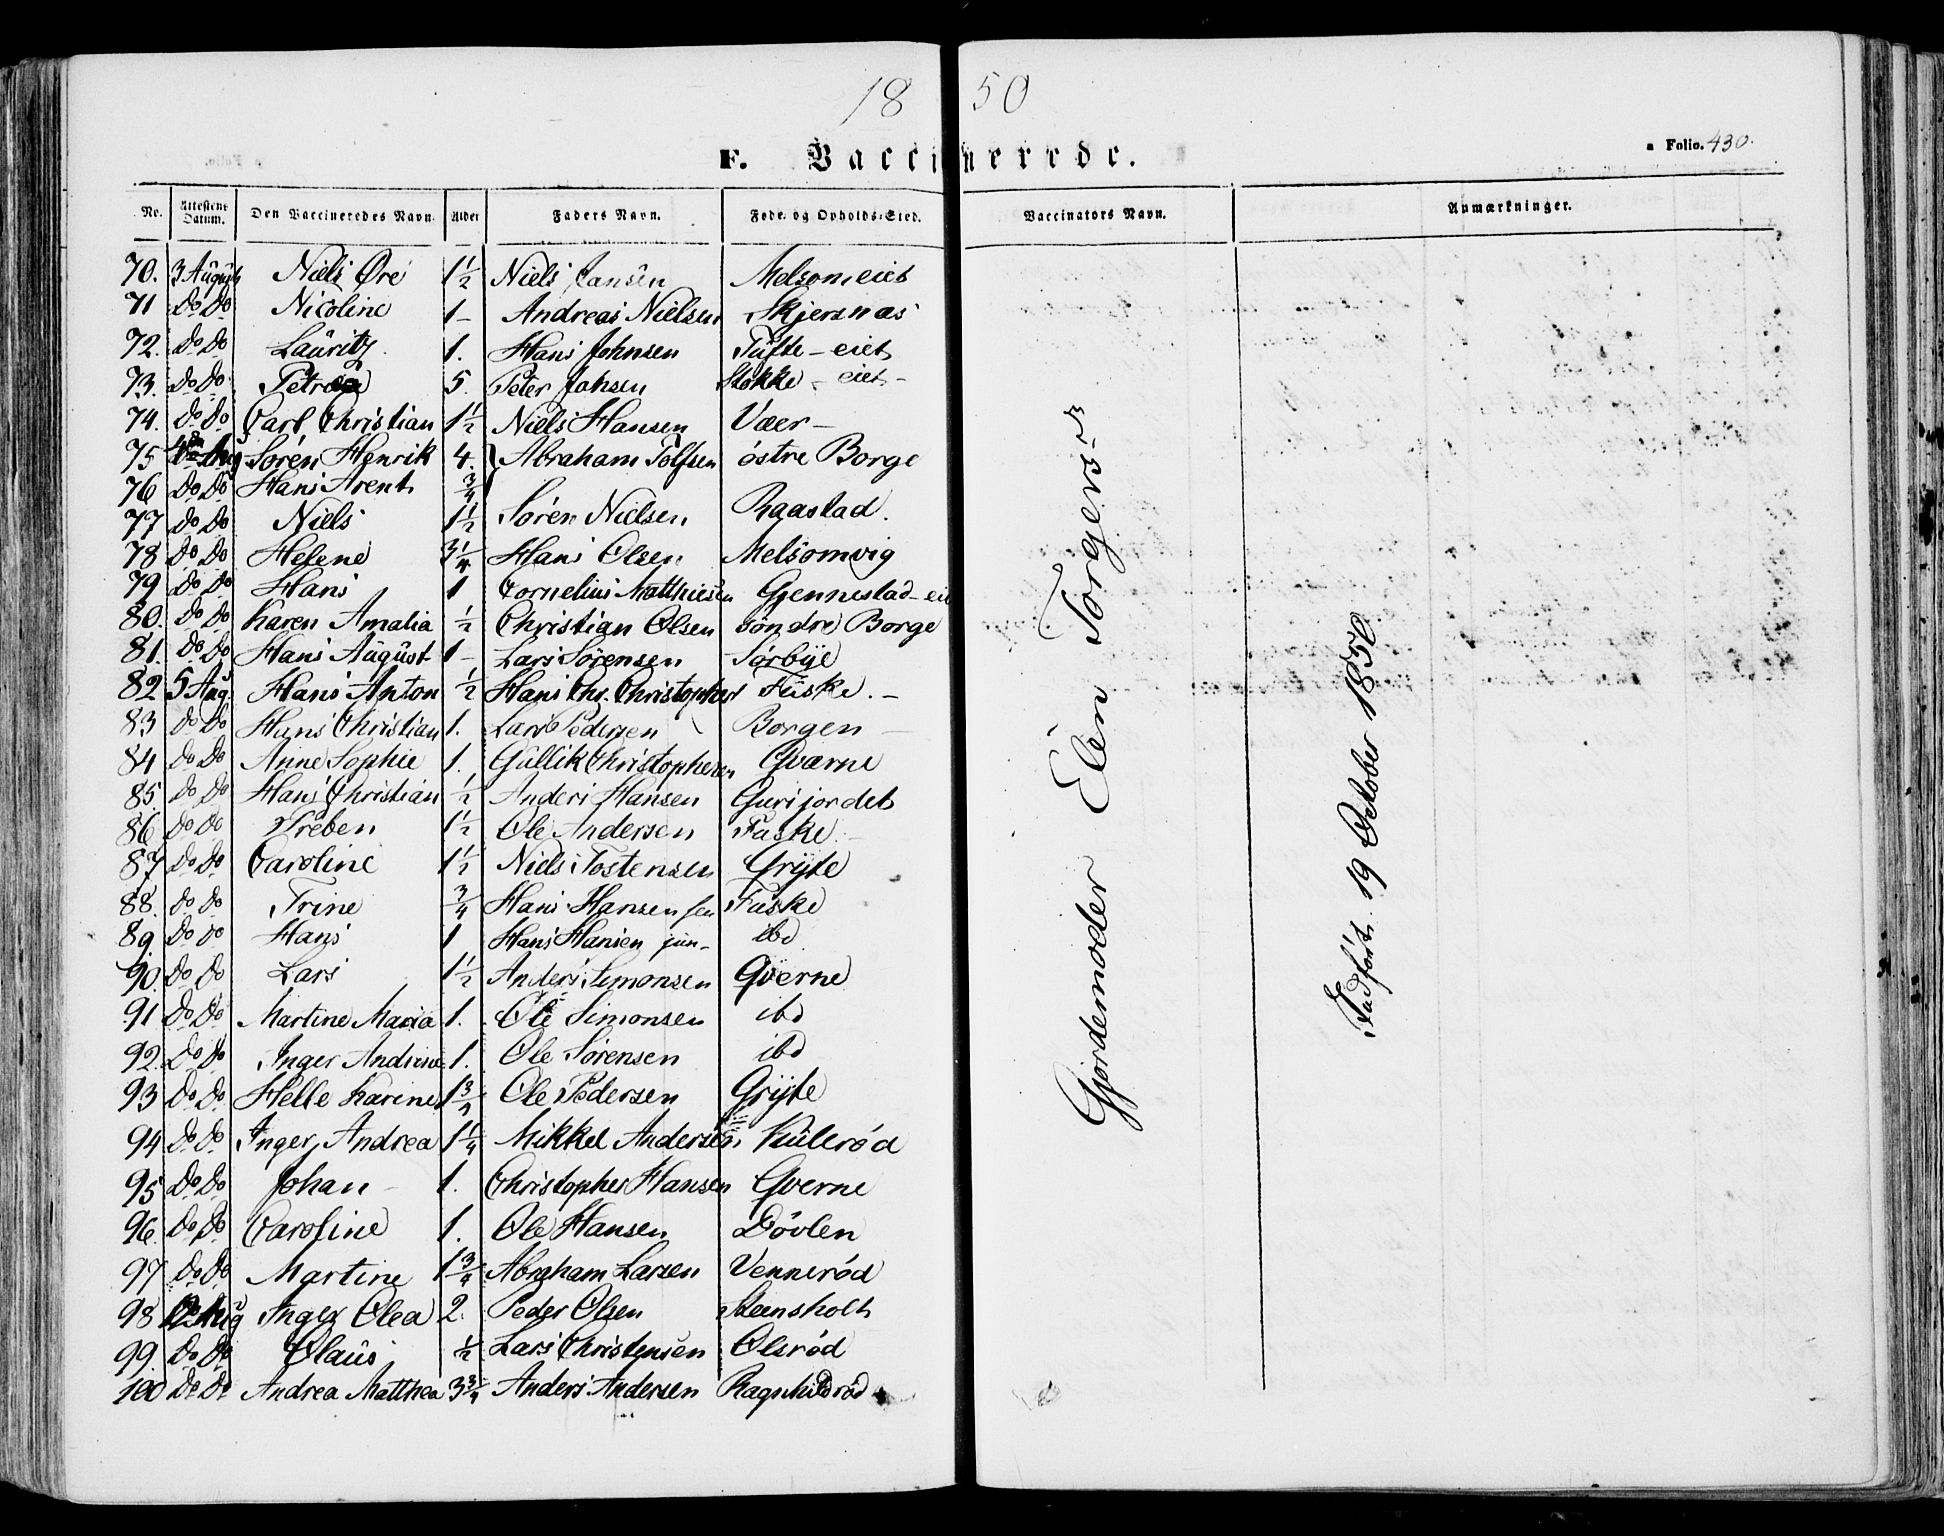 18 50
F. Vaccinerede.
a Folio. 430.
No. Attestens Datum. Den Vaccineredes Navn. Alder Faders Navn. Føde- og Opholds-Sted. Vaccinators Navn. Anmærkninger.
70. 3 August Niels Øre 1½ Niels Jansen Melsom eiet
71 Do Do Nicoline 1 - Andreas Nielsen Skjersnæs
72. Do Do Lauritz 1. Hans Johnsen Tufte - eiet
73. Do Do 5. Peter Johsen Stokke - eiet -
74. Do Do Carl Christian 1½ Niels Hansen Væer -
75 Aug Søren Henrik 4. } Abraham Tolfsen østre Borge
76 Do Do Hans Arent ¾
77 Do Do Niels 1½ Søren Nielsen Raastad.
78 Do Do Helene 3¼ Hans Olsen Melsomvig
79 Do Do Hans 1 Cornelius Matthiesen Gjennestad - eie
80. Do Do Karen Amalia ½ Christian Olsen søndre Borge
81. Do Do Hans August 1 - Lars Sørensen Sørbye
82 5 Aug. Hans Anton ½ Hans Chr. Christophers Fuske. -
83 Do Do Hans Christian 1. Lars Pedersen Borgen -
84 Do Do Anne Sophie 1. Gullik Christophersen Qværne
85. Do Do Hans Christian ½ Anders Hansen Gurijordet
86 Do Do Preben 1½ Ole Andersen Fuske. -
87 Do Do Caroline 1½ Niels Tostensen Gryte
88. Do Do Trine ¾ Hans Hansen sen Fuske
89 Do Do Hans 1 Hans Hansen jun - ibd
90. Do Do Lars 1½ Anders Simonsen Qverne
91 Do Do Martine Maria 1. Ole Simonsen ibd
92. Do Do Inger Andrine 1. Ole Sørensen ibd
93 Do Do Helle Karine 1¾ Ole Pedersen Gryte
94 Do Do Inger Andrea 1¼ Mikkel Andersen Hullerød
95 Do Do Johan - 1. Christopher Hansen Qverne
96. Do Do Caroline 1. Ole Hansen Døvlen
97 Do Do Martine 1¾ Abraham Larsen Vennerød
98 12 Aug Inger Olea 2. Peder Olsen Steensholt
99. Do Do Olaus ½ Lars Christensen Olsrød
100 Do Do Andrea Matthea 3¾ Anders Andersen Ragnhildrød
Gjordemoder Elen Torgersd
Indført 19 October 1850